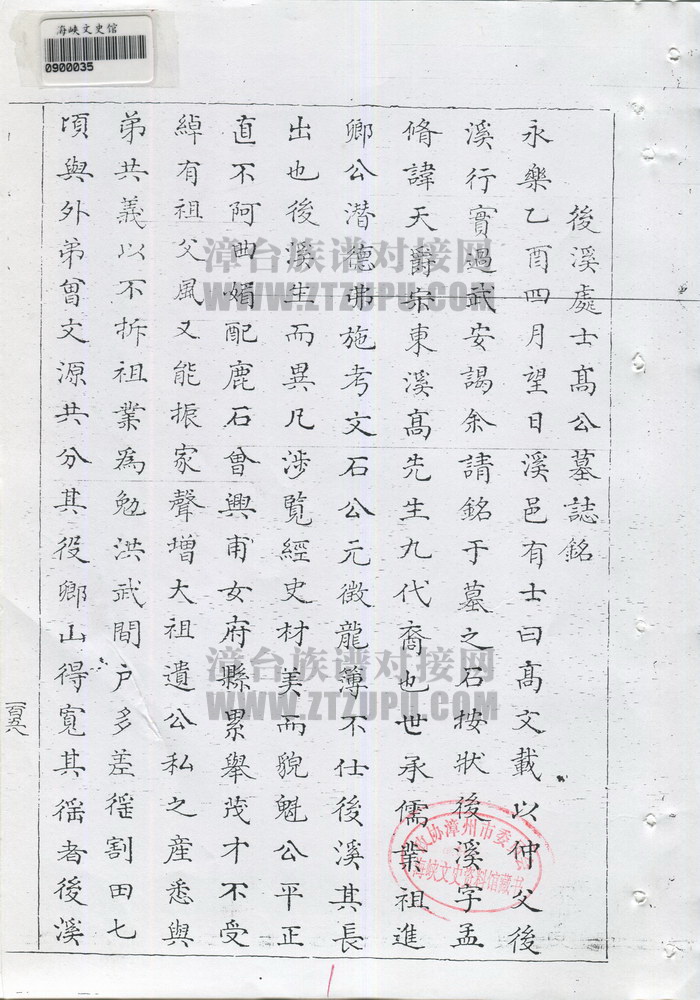 海峡文史馆
0900035
後溪處士高公墓誌銘
永樂乙酉四月望日溪邑有士曰高文載以仲父後
溪行實過武安謁余請銘于墓之石按狀後溪字孟
脩諱天爵宋東溪高先生九代裔也世承儒業祖進
卿公潛德弗施考文石公元徵龍溥不仕後溪其長
出也後溪生而異凡涉覧經史材美而貌魁公平正
直不阿曲媚配鹿石曾興甫女府縣累舉茂才不受
綽有祖父風又能振家聲增大祖遺公私之產悉與
弟共義以不拆祖業為勉洪武間户多差徭割田七
頃與外弟曾文源共分其役鄉山得寬其徭者後溪
一百五八
漳台族谱对接网
WWW.ZTZUPU.COM
漳台族谱对接网
WWW.ZTZUPU.COM
政协漳州市委
海峡文史资料馆藏书
1